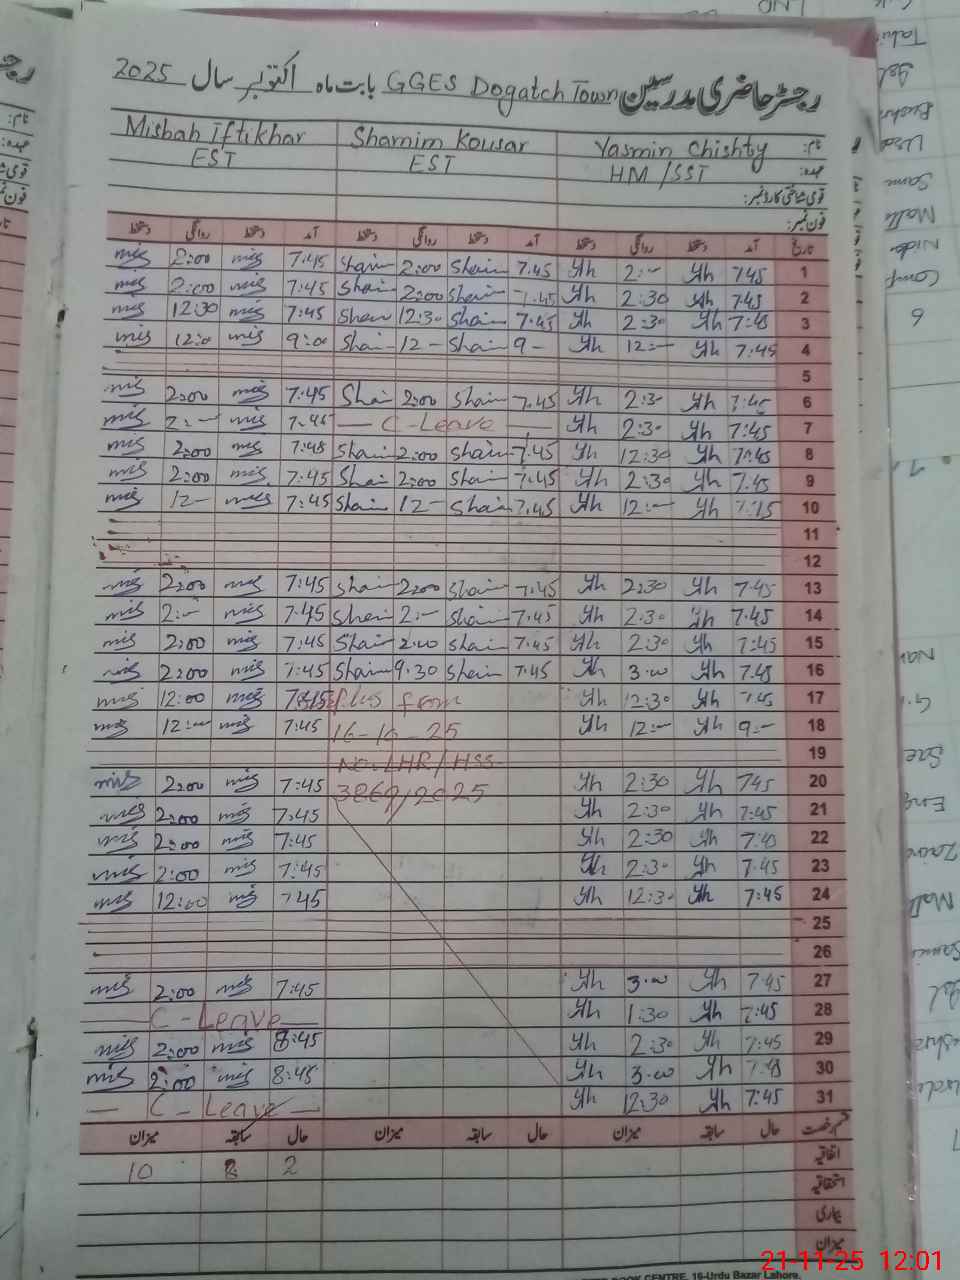 رجسٹر حاضری مدرسین GGES Dogatch Town بابت ماہ اکتوبر سال 2025
نام: Yasmin Chishty Shamim Kousar Misbah Iftikhar
عہدہ: HM/SST EST EST
قومی شناختی کارڈ نمبر:
فون نمبر:
تاریخ آمد دستخط روانگی دستخط آمد دستخط روانگی دستخط آمد دستخط روانگی دستخط
1 7:45 Yh 2:— Yh 7.45 Sham 2:00 Sham 7:45 mis 2:00 mis
2 7:45 Yh 2:30 Yh 7.45 Sham 2:00 Sham 7:45 mis 2:00 mis
3 7:45 Yh 2:30 Yh 7.45 Sham 12:30 Sham 7:45 mis 12:30 mis
4 7:45 Yh 12:— Yh 9- Sham 12- Sham 9:00 mis 12:0 mis
5
6 7:45 Yh 2:30 Yh 7.45 Sham 2:00 Sham 7:45 mis 2:00 mis
7 7:45 Yh 2:30 Yh — C-Leave — 7.45 mis 2:— mis
8 7:45 Yh 12:30 Yh 7.45 Sham 2:00 Sham 7:45 mis 2:00 mis
9 7:45 Yh 2:30 Yh 7.45 Sham 2:00 Sham 7:45 mis 2:00 mis
10 Yh 12:— Yh 7.45 Sham 12- Sham 7:45 mis 12- mis
11
12
13 7:45 Yh 2:30 Yh 7.45 Sham 2:00 Sham 7:45 mis 2:00 mis
14 7:45 Yh 2:30 Yh 7.45 Sham 2:— Sham 7:45 mis 2:— mis
15 7:45 Yh 2:30 Yh 7.45 Sham 2:00 Sham 7:45 mis 2:00 mis
16 7:45 Yh 3:00 Yh 7.45 Sham 9.30 Sham 7:45 mis 2:00 mis
17 7:45 Yh 12:30 Yh from 7:45 mis 12:00 mis
18 9:— Yh 12:— Yh 16-10-25 7:45 mis 12:— mis
19 No. LHR/HSS
20 745 Yh 2:30 Yh 3869/2025 7:45 mis 2:00 mis
21 7:45 Yh 2:30 Yh 7.45 mis 2:00 mis
22 7:45 Yh 2:30 Yh 7:45 mis 2:00 mis
23 7:45 Yh 2:30 Yh 7:45 mis 2:00 mis
24 7:45 Yh 12:30 Yh 7:45 mis 12:00 mis
25
26
27 7:45 Yh 3:00 Yh 7:45 mis 2:00 mis
28 7:45 Yh 1:30 Yh C-Leave —
29 7:45 Yh 2:30 Yh 8:45 mis 2:00 mis
30 7:45 Yh 3:00 Yh 8:45 mis 2:00 mis
31 7:45 Yh 12:30 Yh — C-Leave —
قسم رخصت حال سابقہ میزان حال سابقہ میزان حال سابقہ میزان
اتفاقیہ 2 8 10
استحقاقیہ
بیماری
میزان
BOOK CENTRE, 16-Urdu Bazar Lahore.
21-11-25 12:01